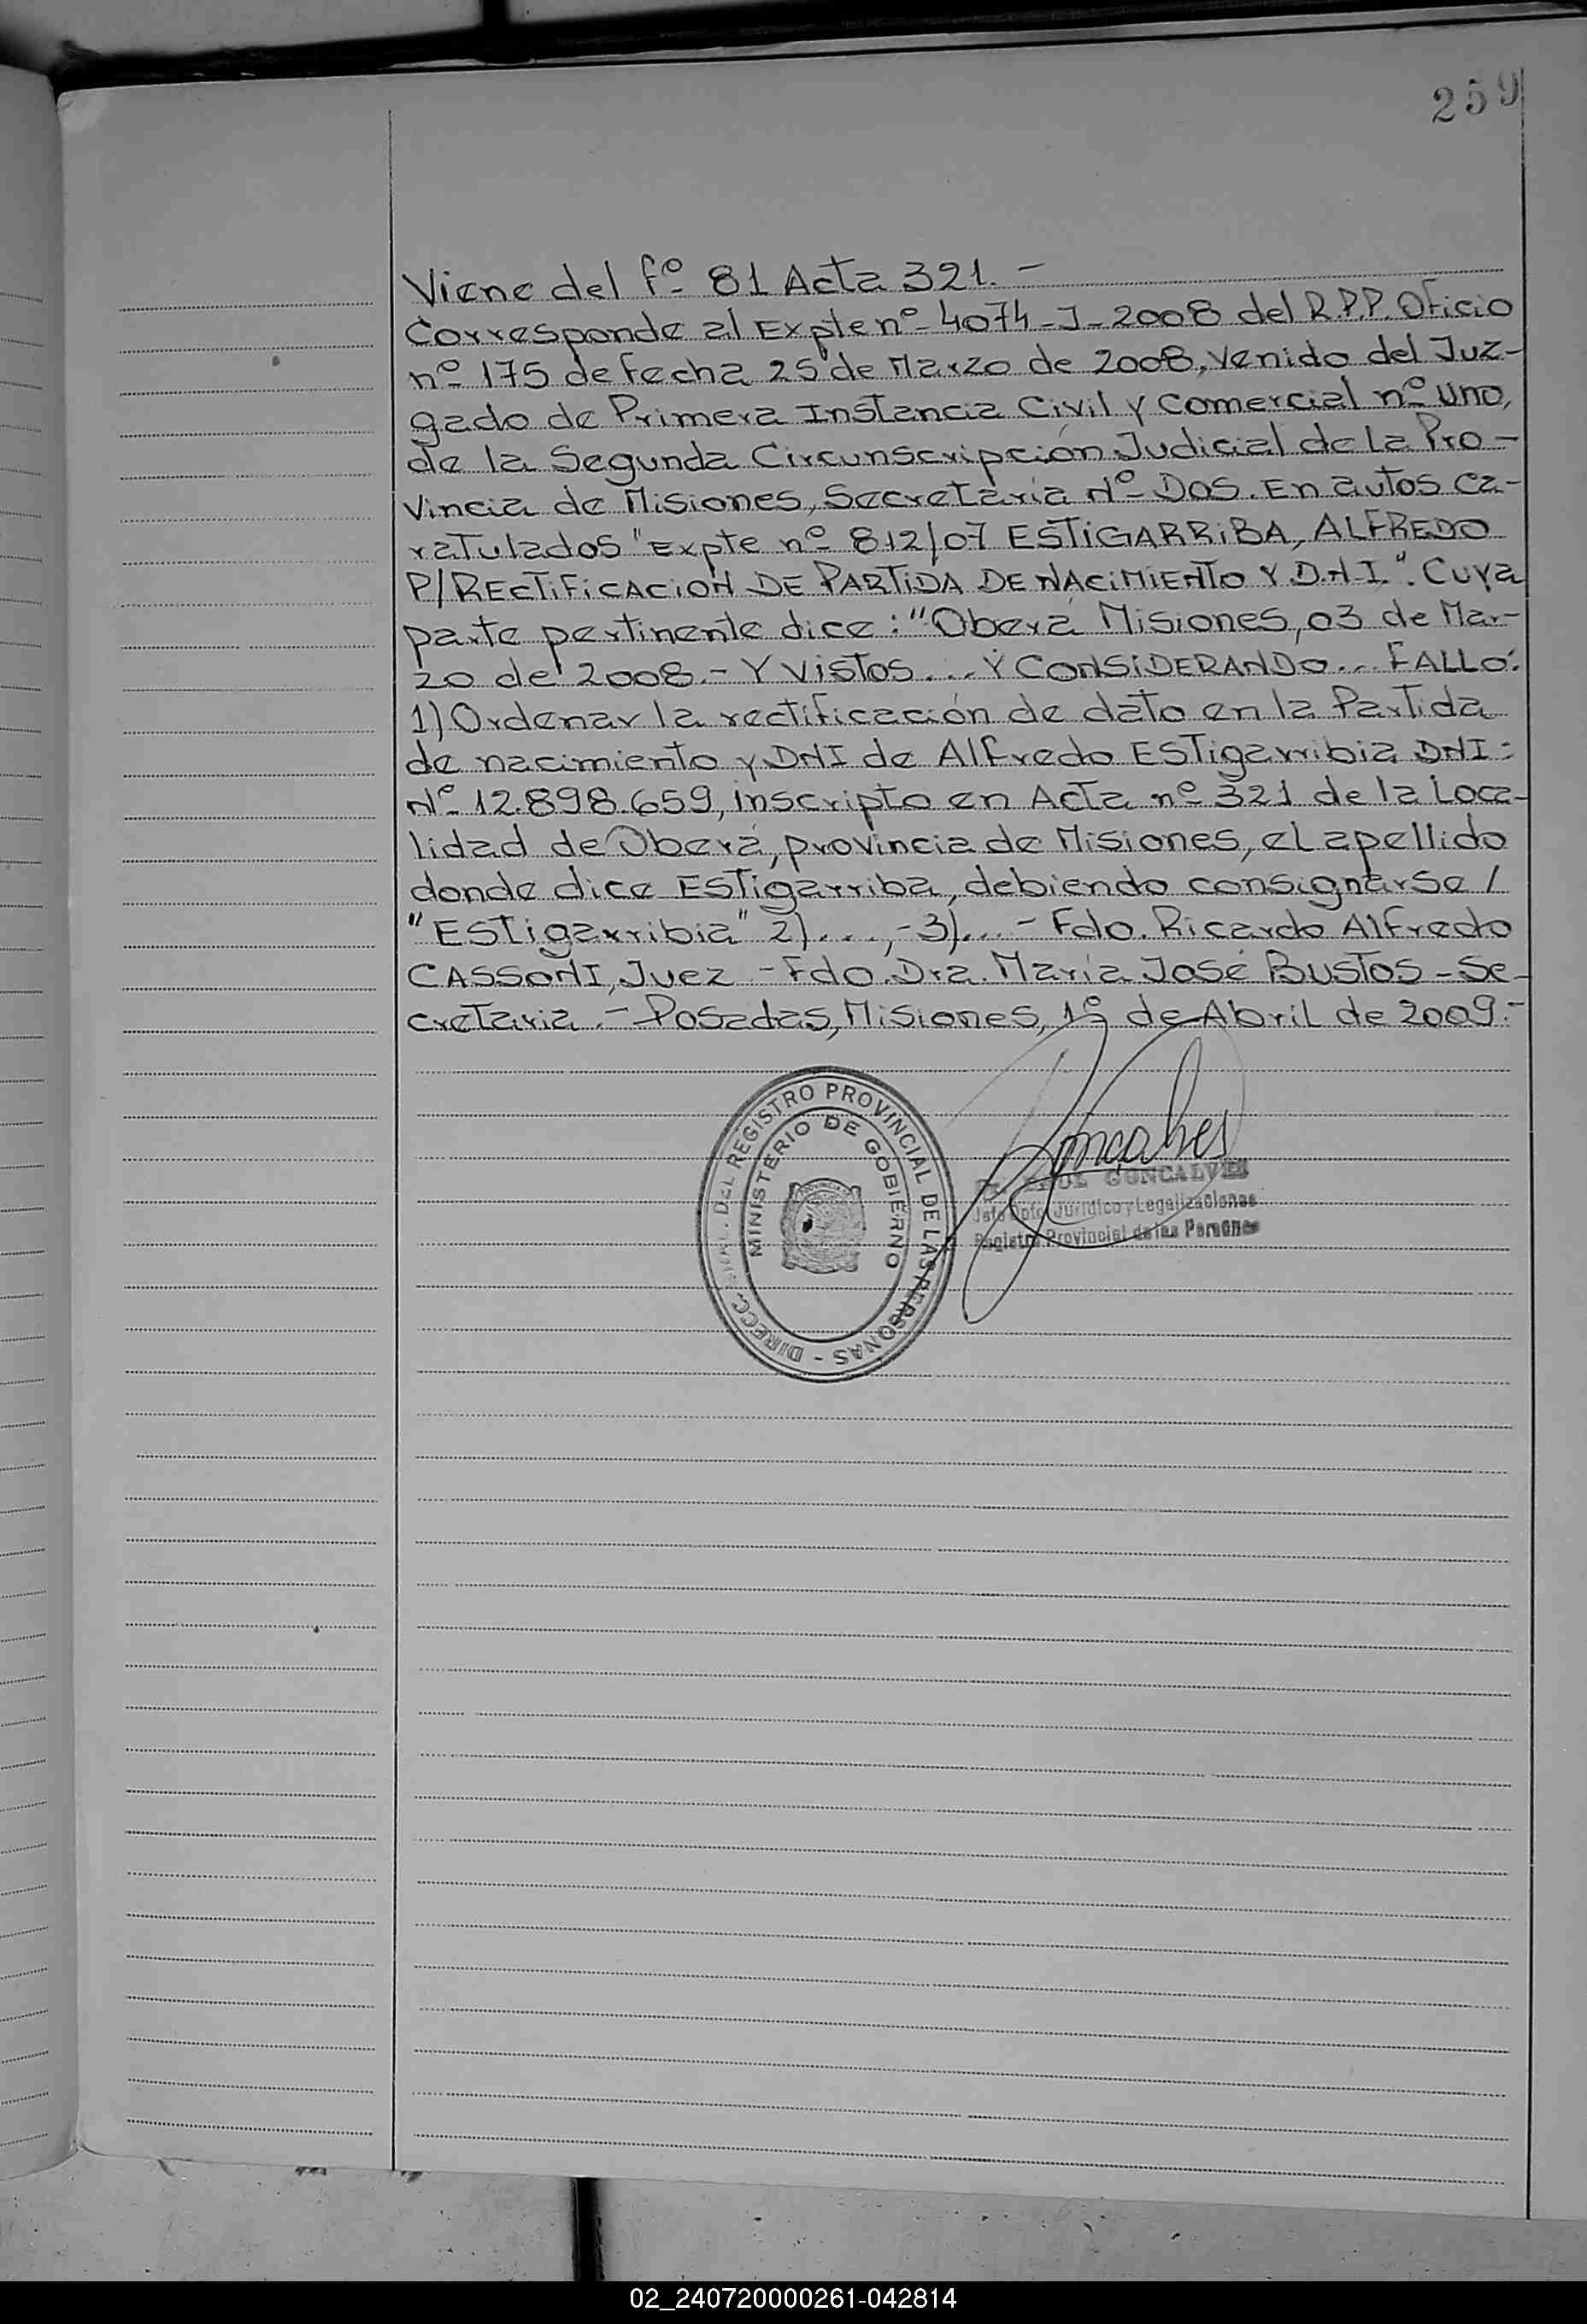 259
Viene del fº 81 Acta 321.-
Corresponde al Expte nº 4074-J-2008 del R.P.P. Oficio
nº 175 de fecha 25 de Marzo de 2008, Venido del Juz-
gado de Primera Instancia Civil y Comercial nº Uno,
de la Segunda Circunscripción Judicial de La Pro-
vincia de Misiones, Secretaría Nº Dos. En autos ca-
ratulados "Expte nº 812/07 ESTIGARRIBA, ALFREDO
P/RECTIFICACION DE PARTIDA DE NACIMIENTO Y D.N.I.". Cuya
parte pertinente dice: "Oberá Misiones, 03 de Mar-
zo de 2008.- Y VISTOS... Y CONSIDERANDO... FALLO:
1) Ordenar la rectificación de dato en la Partida
de nacimiento y DNI de Alfredo Estigarribia DNI:
Nº 12.898.659, inscripto en Acta nº 321 de la Loca-
lidad de Oberá, provincia de Misiones, el apellido
donde dice Estigarriba, debiendo consignarse /
"Estigarribia" 2)...,-3)...- Fdo. Ricardo Alfredo
CASSONI, Juez - Fdo. Dra. María José BUSTOS - Se-
cretaria.- Posadas, Misiones, 1º de Abril de 2009.-
DEL REGISTRO PROVINCIAL DE LAS PERSONAS -
MINISTERIO DE GOBIERNO
Goncalves
GONCALVES
Jefe Dpto. Jurídico y Legalizaciones
Registro Provincial de las Personas
02_240720000261-042814